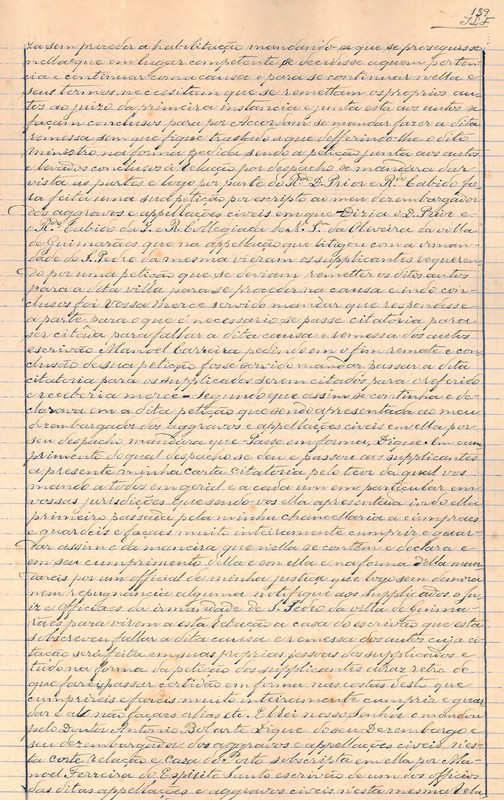 139
za sem preceder a habilitação mandando-se que se proseguisse
nella que em lugar competente se decidisse a quem perten
cia e continuar com a causa e para se continuar n'ella e
seus termos, necessitam que se remettam os proprios au
tos ao juizo da primeira instancia e junta esta aos autos se
façam conclusos para por Accordam se mandar fazer a dita
remessa sem que fique traslado a que defferindo-lhe o dito
ministro na forma pedida sendo a petição junta aos autos
e levados conclusos á Relação por despacho se mandára dar
vista as partes e logo por parte do Rdo D. Prior e Rdo Cabido fo
ra feita uma sua petição por escripto ao meu dezembargador
dos aggravos e appellações civeis em que Dizia o D. Prior e
o Rdo Cabido da I. e R. Collegiada de N. Sra da Oliveira da villa
de Guimarães que na appellação que litigou com a irman
dade de S. Pedro da mesma vieram os supplicantes requeren
do por uma petição que se deviam remetter os ditos autos
para a dita villa para se proceder na causa e indo con
clusos foi Vossa merce servido mandar que respondesse
a parte para o que é necessario se passe citatoria para
ser citada para fallar a dita causa e remessa dos autos
escrivão Manoel Carreira pedindo em o fim remate e con
clusão de sua petição fosse servido mandar passar a dita
citatoria para os supplicados serem citados para o referido
e receberia mercê - segundo que assim se continha e de
clarava em a dita petição que sendo apresentada ao meu
dezembargador dos aggravos e appellações civeis em ella por
seu despacho mandára que - Passe em forma, Dique. Em cum
primento do qual despacho se deu e passou aos supplicantes
a presente minha carta citatoria pelo teor da qual vos
mando a todos em geral e a cada um em particular em
vossas jurisdicções que sendo-vos ella apresentada indo ella
primeiro passada pela minha chancellaria a cumpraes
e guardeis e façaes muito inteiramente cumprir e guar
dar assim e da maneira que n'ella se contém e declara e
em seu cumprimento d'ella e em ella e na forma d'ella man
dareis por um official de minha justiça que logo sem demora
nem repugnancia alguma notifique aos supplicados o ju
iz e officiaes da irmandade de S. Pedro da villa de Guima
rães para virem a esta Relação a casa do escrivão que esta
sobscreveu fallar a dita causa e remessa dos autos cuja ci
tação será feita em suas proprias pessoas dos supplicados e
tudo na forma da petição dos supplicantes atraz retro de
que fareis passar certidão em forma nas costas d'esta que
cumprireis e fareis muito inteiramente cumprir e guar
dar e al não façaes alias etc. El-Rei nosso senhor o mandou
pelo Doutor Antonio Dique do seu Dezembargo e
seu dezembargador dos aggravos e appellações civeis n'es
ta corte Relação e Casa do Porto sobscripta em ella por Ma
noel Ferreira do Espirito Santo escrivão de um dos officios
das ditas appellações e aggravos civeis n'esta mesma Rela